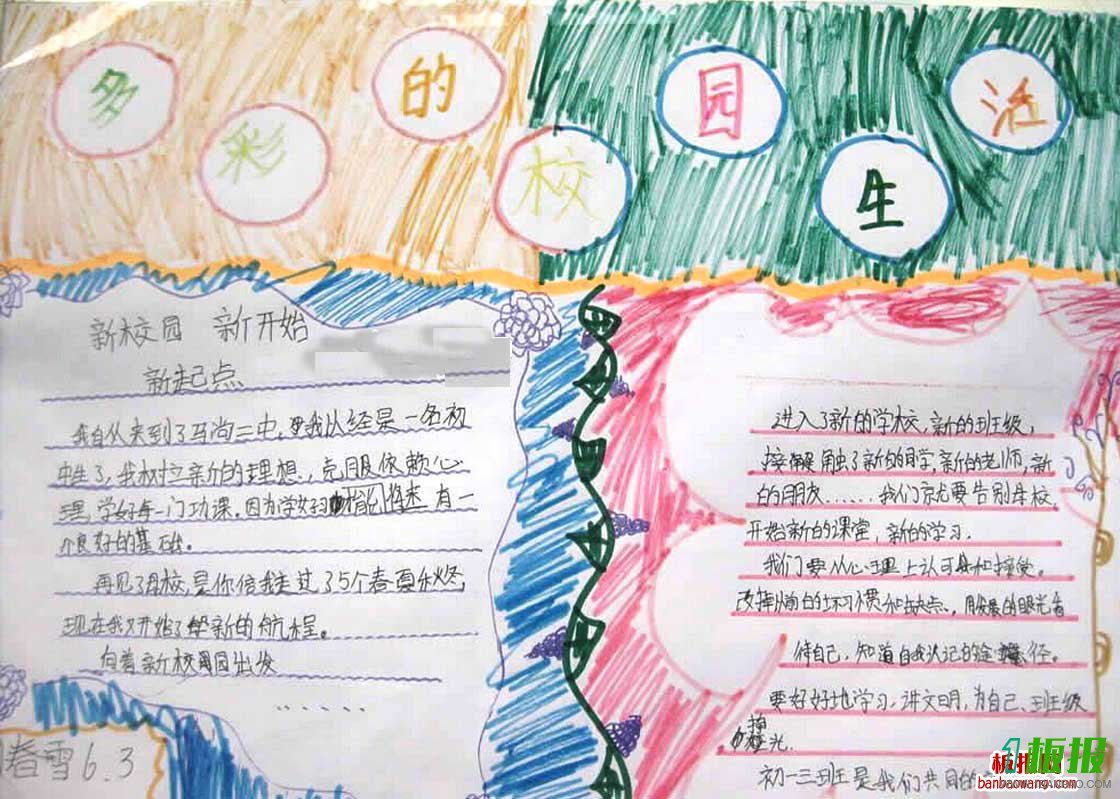 多彩的校园生活
新校园 新开始
新起点
我自从来到了马尚二中,我以经是一名初
中生了,我树立新的理想,克服依赖心
理,学好每一门功课。因为学好 有一
个良好的基础。
再见了母校,是你倍我走过了5个春夏秋冬,
现在我又开始了新的航程。
向着新校园出发
......
春雪6.3
进入了新的学校,新的班级,
接触了新的同学,新的老师,新
的朋友......我们京尤要告别母校,
开始新的课堂,新的学习.
我们要从心理上认可和接受。
改掉以前的坏习惯和缺点.,用发展的眼光看
待自己,知道自我认记的途径。
要好好地学习.讲文明,为自己、班级
争光.
初一三班是我们共同的
板报
banbaowang.com